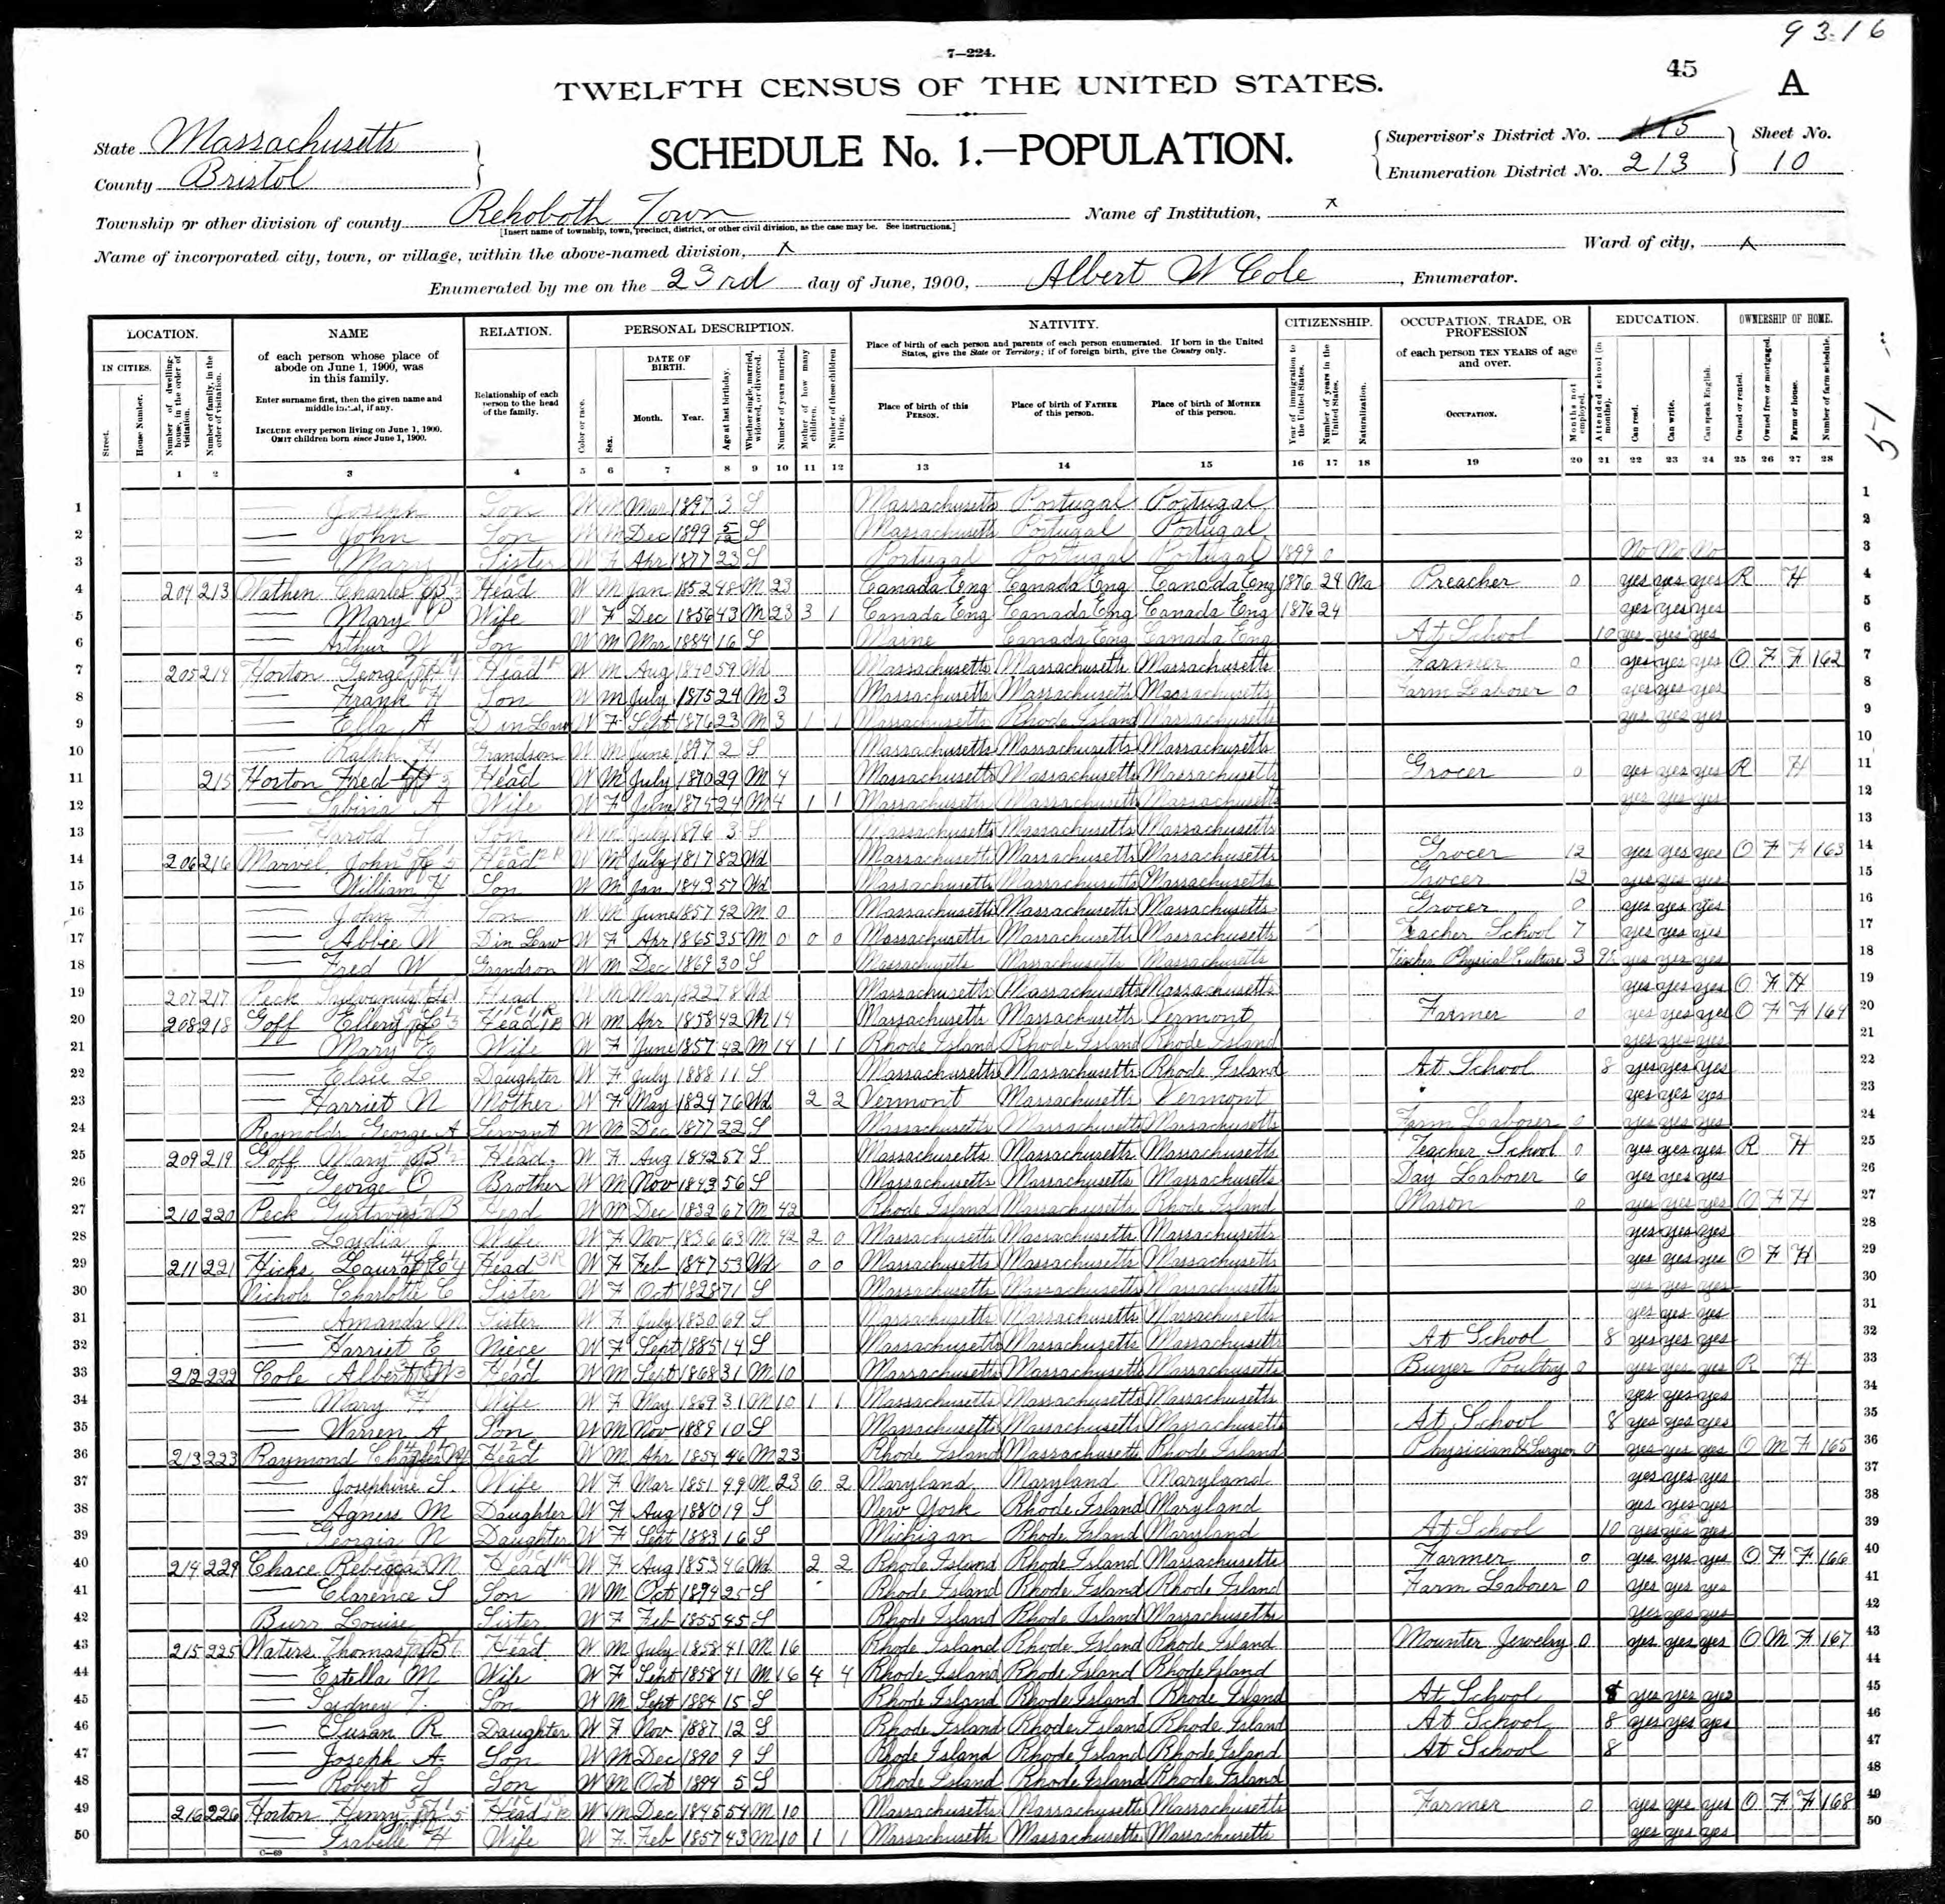 93-16
7—224.
45
A
TWELFTH CENSUS OF THE UNITED STATES.
State Massachusetts
SCHEDULE No. 1.—POPULATION.
Supervisor's District No. 115
Sheet No.
County Bristol
Enumeration District No. 213
10
Township or other division of county Rehoboth Town
Name of Institution, x
[Insert name of township, town, precinct, district, or other civil division, as the case may be. See instructions.]
Name of incorporated city, town, or village, within the above-named division, x
Ward of city, x
Enumerated by me on the 23rd day of June, 1900, Albert W Cole, Enumerator.
LOCATION. NAME RELATION. PERSONAL DESCRIPTION. NATIVITY. CITIZENSHIP. OCCUPATION, TRADE, OR PROFESSION EDUCATION. OWNERSHIP OF HOME.
IN CITIES.
Street.
House Number.
Number of dwelling-house, in the order of visitation.
Number of family, in the order of visitation.
of each person whose place of abode on June 1, 1900, was in this family.
Enter surname first, then the given name and middle initial, if any.
INCLUDE every person living on June 1, 1900.
OMIT children born since June 1, 1900.
Relationship of each person to the head of the family.
Color or race.
Sex.
DATE OF BIRTH.
Month. Year.
Age at last birthday.
Whether single, married, widowed, or divorced.
Number of years married.
Mother of how many children.
Number of these children living.
Place of birth of each person and parents of each person enumerated. If born in the United States, give the State or Territory; if of foreign birth, give the Country only.
Place of birth of this PERSON.
Place of birth of FATHER of this person.
Place of birth of MOTHER of this person.
Year of immigration to the United States.
Number of years in the United States.
Naturalization.
of each person TEN YEARS of age and over.
OCCUPATION.
Months not employed.
Attended school (in months).
Can read.
Can write.
Can speak English.
Owned or rented.
Owned free or mortgaged.
Farm or house.
Number of farm schedule.
1 2 3 4 5 6 7 8 9 10 11 12 13 14 15 16 17 18 19 20 21 22 23 24 25 26 27 28
1 — Joseph Son W M Mar 1897 3 S Massachusetts Portugal Portugal 1
2 — John Son W M Dec 1899 5/12 S Massachusetts Portugal Portugal 2
3 — Mary Sister W F Apr 1877 23 S Portugal Portugal Portugal 1899 0 No No No 3
4 204 213 Wathen Charles Head W M Jan 1852 48 M 23 Canada Eng Canada Eng Canada Eng 1876 24 Na Preacher 0 yes yes yes R H 4
5 — Mary P Wife W F Dec 1856 43 M 23 3 1 Canada Eng Canada Eng Canada Eng 1876 24 yes yes yes 5
6 — Arthur W Son W M Mar 1884 16 S Maine Canada Eng Canada Eng At School 10 yes yes yes 6
7 205 214 Horton George Head W M Aug 1840 59 Wd Massachusetts Massachusetts Massachusetts Farmer 0 yes yes yes O F F 162 7
8 — Frank H Son W M July 1875 24 M 3 Massachusetts Massachusetts Massachusetts Farm Laborer 0 yes yes yes 8
9 — Ella A D in Law W F Sept 1876 23 M 3 1 1 Massachusetts Rhode Island Massachusetts yes yes yes 9
10 — Ralph H Grandson W M June 1897 2 S Massachusetts Massachusetts Massachusetts 10
11 215 Horton Fred Head W M July 1870 29 M 4 Massachusetts Massachusetts Massachusetts Grocer 0 yes yes yes R H 11
12 — A Wife W F June 1875 24 M 4 1 1 Massachusetts Massachusetts Massachusetts yes yes yes 12
13 — Son W M July 1896 3 S Massachusetts Massachusetts Massachusetts 13
14 206 216 Marvel, John Head W M July 1817 82 Wd Massachusetts Massachusetts Massachusetts Grocer 12 yes yes yes O F F 163 14
15 — William H Son W M Jan 1843 57 Wd Massachusetts Massachusetts Massachusetts Grocer 12 yes yes yes 15
16 — John F Son W M June 1857 42 M 0 Massachusetts Massachusetts Massachusetts Grocer 0 yes yes yes 16
17 — Abbie W D in Law W F Apr 1865 35 M 0 0 0 Massachusetts Massachusetts Massachusetts Teacher School 7 yes yes yes 17
18 — Fred W Grandson W M Dec 1869 30 S Massachusetts Massachusetts Massachusetts Teacher Physical Culture 3 yes yes yes 18
19 207 217 Peck Sylvanus Head W M Mar 1822 78 Wd Massachusetts Massachusetts Massachusetts yes yes yes O F H 19
20 208 218 Goff Ellery Head W M Apr 1858 42 M 14 Massachusetts Massachusetts Vermont Farmer 0 yes yes yes O F F 164 20
21 — Mary E Wife W F June 1857 42 M 14 1 1 Rhode Island Rhode Island Rhode Island yes yes yes 21
22 — Elsie L Daughter W F July 1888 11 S Massachusetts Massachusetts Rhode Island At School 8 yes yes yes 22
23 — Harriet N Mother W F May 1824 76 Wd 2 2 Vermont Massachusetts Vermont yes yes yes 23
24 Reynolds George A Servant W M Dec 1877 22 S Massachusetts Massachusetts Massachusetts Farm Laborer 0 yes yes yes 24
25 209 219 Goff Mary B Head W F Aug 1842 57 S Massachusetts Massachusetts Massachusetts Teacher School 0 yes yes yes R H 25
26 — George O Brother W M Nov 1843 56 S Massachusetts Massachusetts Massachusetts Day Laborer 6 yes yes yes 26
27 210 220 Peck Gustavus B Head W M Dec 1832 67 M 42 Rhode Island Massachusetts Rhode Island Mason 0 yes yes yes O F H 27
28 — Lydia J Wife W F Nov 1836 63 M 42 2 0 Massachusetts Massachusetts Massachusetts yes yes yes 28
29 211 221 Hicks Laura Head W F Feb 1847 53 Wd 0 0 Massachusetts Massachusetts Massachusetts yes yes yes O F H 29
30 Nichols Charlotte C Sister W F Oct 1828 71 S Massachusetts Massachusetts Massachusetts yes yes yes 30
31 — Amanda M Sister W F July 1830 69 S Massachusetts Massachusetts Massachusetts yes yes yes 31
32 — Harriet E Niece W F Sept 1885 14 S Massachusetts Massachusetts Massachusetts At School 8 yes yes yes 32
33 212 222 Cole Albert W Head W M Sept 1868 31 M 10 Massachusetts Massachusetts Massachusetts Buyer Poultry 0 yes yes yes R H 33
34 — Mary H Wife W F May 1869 31 M 10 1 1 Massachusetts Massachusetts Massachusetts yes yes yes 34
35 — Warren A Son W M Nov 1889 10 S Massachusetts Massachusetts Massachusetts At School 8 yes yes yes 35
36 213 223 Raymond Head W M Apr 1854 46 M 23 Rhode Island Massachusetts Rhode Island Physician & Surgeon 0 yes yes yes O M F 165 36
37 — Josephine S. Wife W F Mar 1851 49 M 23 6 2 Maryland Maryland Maryland yes yes yes 37
38 — Agness M Daughter W F Aug 1880 19 S New York Rhode Island Maryland yes yes yes 38
39 — Georgia N Daughter W F Sept 1883 16 S Michigan Rhode Island Maryland At School 10 yes yes yes 39
40 214 224 Chace Rebecca M Head W F Aug 1853 46 Wd 2 2 Rhode Island Rhode Island Massachusetts Farmer 0 yes yes yes O F F 166 40
41 — Clarence S Son W M Oct 1874 25 S Rhode Island Rhode Island Rhode Island Farm Laborer 0 yes yes yes 41
42 Burr Louise Sister W F Feb 1855 45 S Rhode Island Rhode Island Massachusetts yes yes yes 42
43 215 225 Waters Thomas B Head W M July 1858 41 M 16 Rhode Island Rhode Island Rhode Island Mounter Jewelry 0 yes yes yes O M F 167 43
44 — Estella M Wife W F Sept 1858 41 M 16 4 4 Rhode Island Rhode Island Rhode Island 44
45 — Sydney T. Son W M Sept 1884 15 S Rhode Island Rhode Island Rhode Island At School 8 yes yes yes 45
46 — Susan R Daughter W F Nov 1887 12 S Rhode Island Rhode Island Rhode Island At School 8 yes yes yes 46
47 — Joseph A Son W M Dec 1890 9 S Rhode Island Rhode Island Rhode Island At School 8 47
48 — Robert S Son W M Oct 1894 5 S Rhode Island Rhode Island Rhode Island 48
49 216 226 Horton Henry Head W M Dec 1845 54 M 10 Massachusetts Massachusetts Massachusetts Farmer 0 yes yes yes O F F 168 49
50 — Isabelle H Wife W F Feb 1857 43 M 10 1 1 Massachusetts Massachusetts Massachusetts yes yes yes 50
C—69 3
51